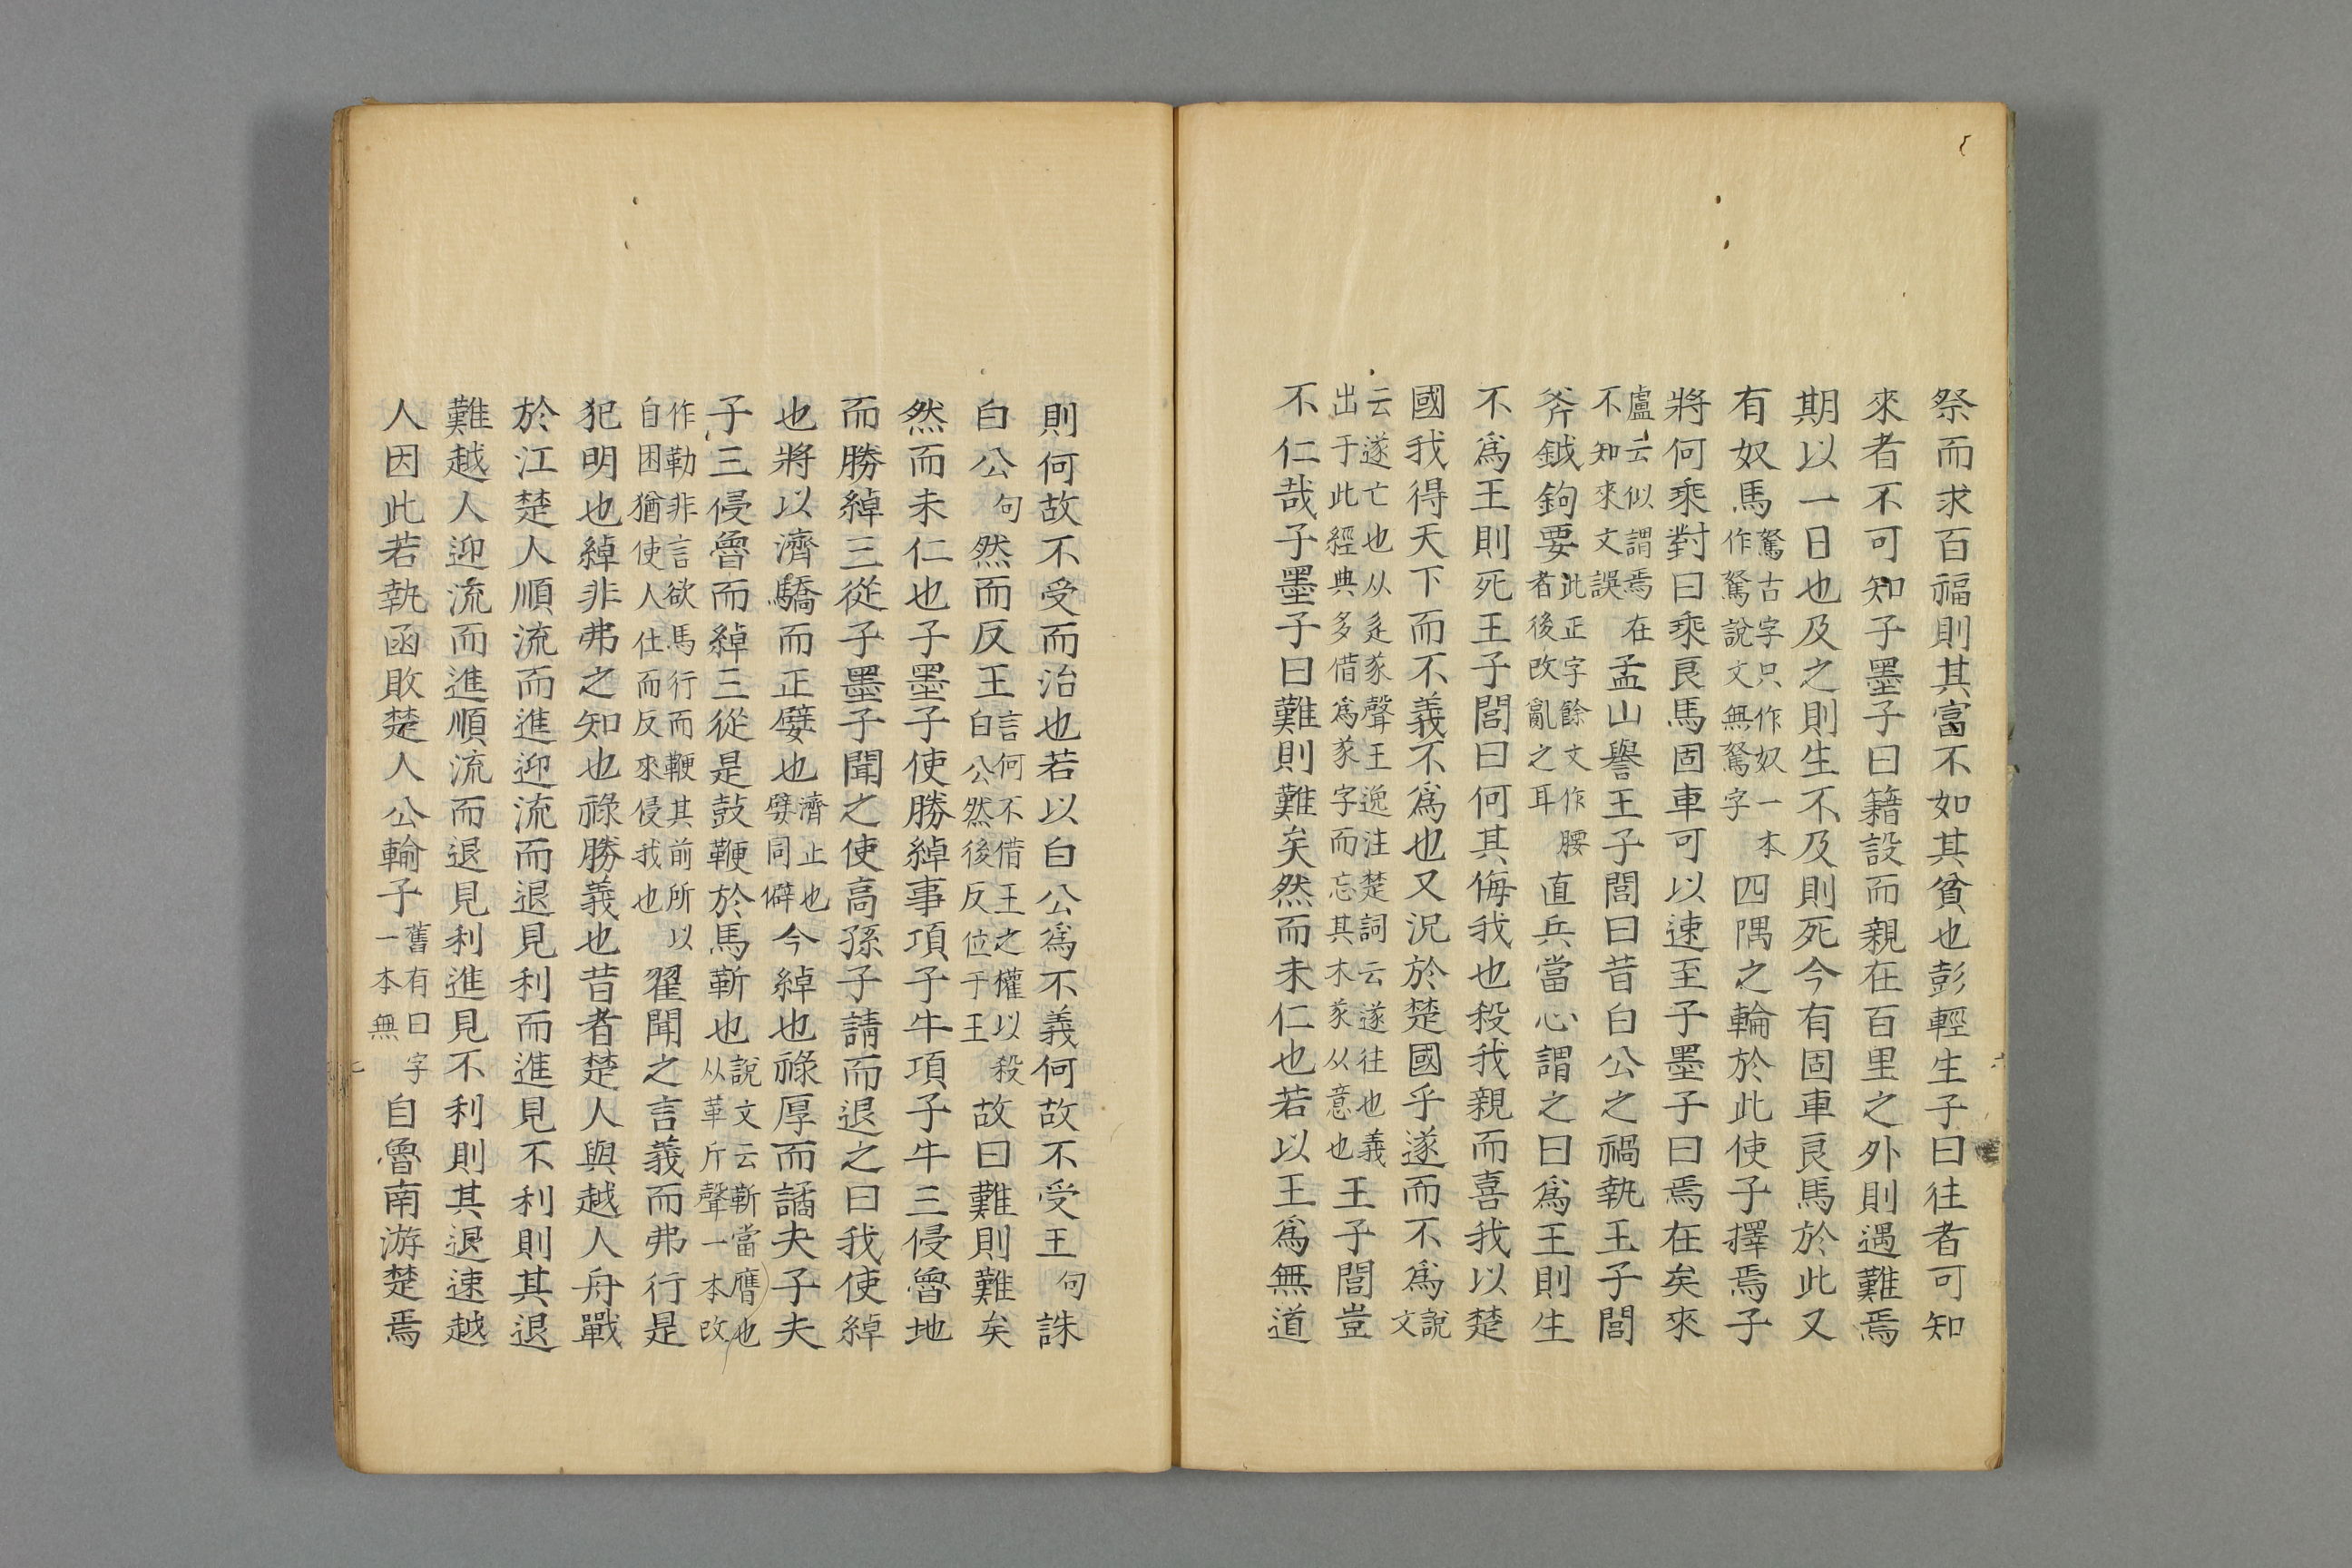 祭而求百福則其富不如其貧也彭輕生子曰往者可知
來者不可知子墨子曰籍設而親在百里之外則遇難焉
期以一日也及之則生不及則死今有固車良馬於此又
有奴馬駑古字只作奴一本作駑說文無駑字四隅之輪於此使子擇焉子
將何乘對曰乘良馬固車可以速至子墨子曰焉在矣來
盧云似謂焉在不知來文誤孟山譽王子閭曰昔白公之禍執王子閭
斧鉞鉤要此正字餘文作腰者後改亂之耳直兵當心謂之曰爲王則生
不爲王則死王子閭曰何其侮我也殺我親而喜我以楚
國我得天下而不義不爲也又況於楚國乎遂而不爲說文
云遂亡也从辵㒸聲王逸注楚詞云遂往也義出于此經典多借爲㒸字而忘其木㒸从意也王子閭豈
不仁哉子墨子曰難則難矣然而未仁也若以王爲無道
則何故不受而治也若以白公爲不義何故不受王句誅
白公句然而反王言何不借王之權以殺白公然後反位于王故曰難則難矣
然而未仁也子墨子使勝綽事項子牛項子牛三侵魯地
而勝綽三從子墨子聞之使高孫子請而退之曰我使綽
也將以濟驕而正嬖也濟止也嬖同僻今綽也祿厚而譎夫子夫
子三侵魯而綽三從是鼓鞭於馬靳也說文云靳當膺也从革斤聲一本改
作勒非言欲馬行而鞭其前所以自困猶使人仕而反來侵我也翟聞之言義而弗行是
犯明也綽非弗之知也祿勝義也昔者楚人與越人舟戰
於江楚人順流而進迎流而退見利而進見不利則其退
難越人迎流而進順流而退見利進見不利則其退速越
人因此若執函敗楚人公輸子舊有曰字一本無自魯南游楚焉
七